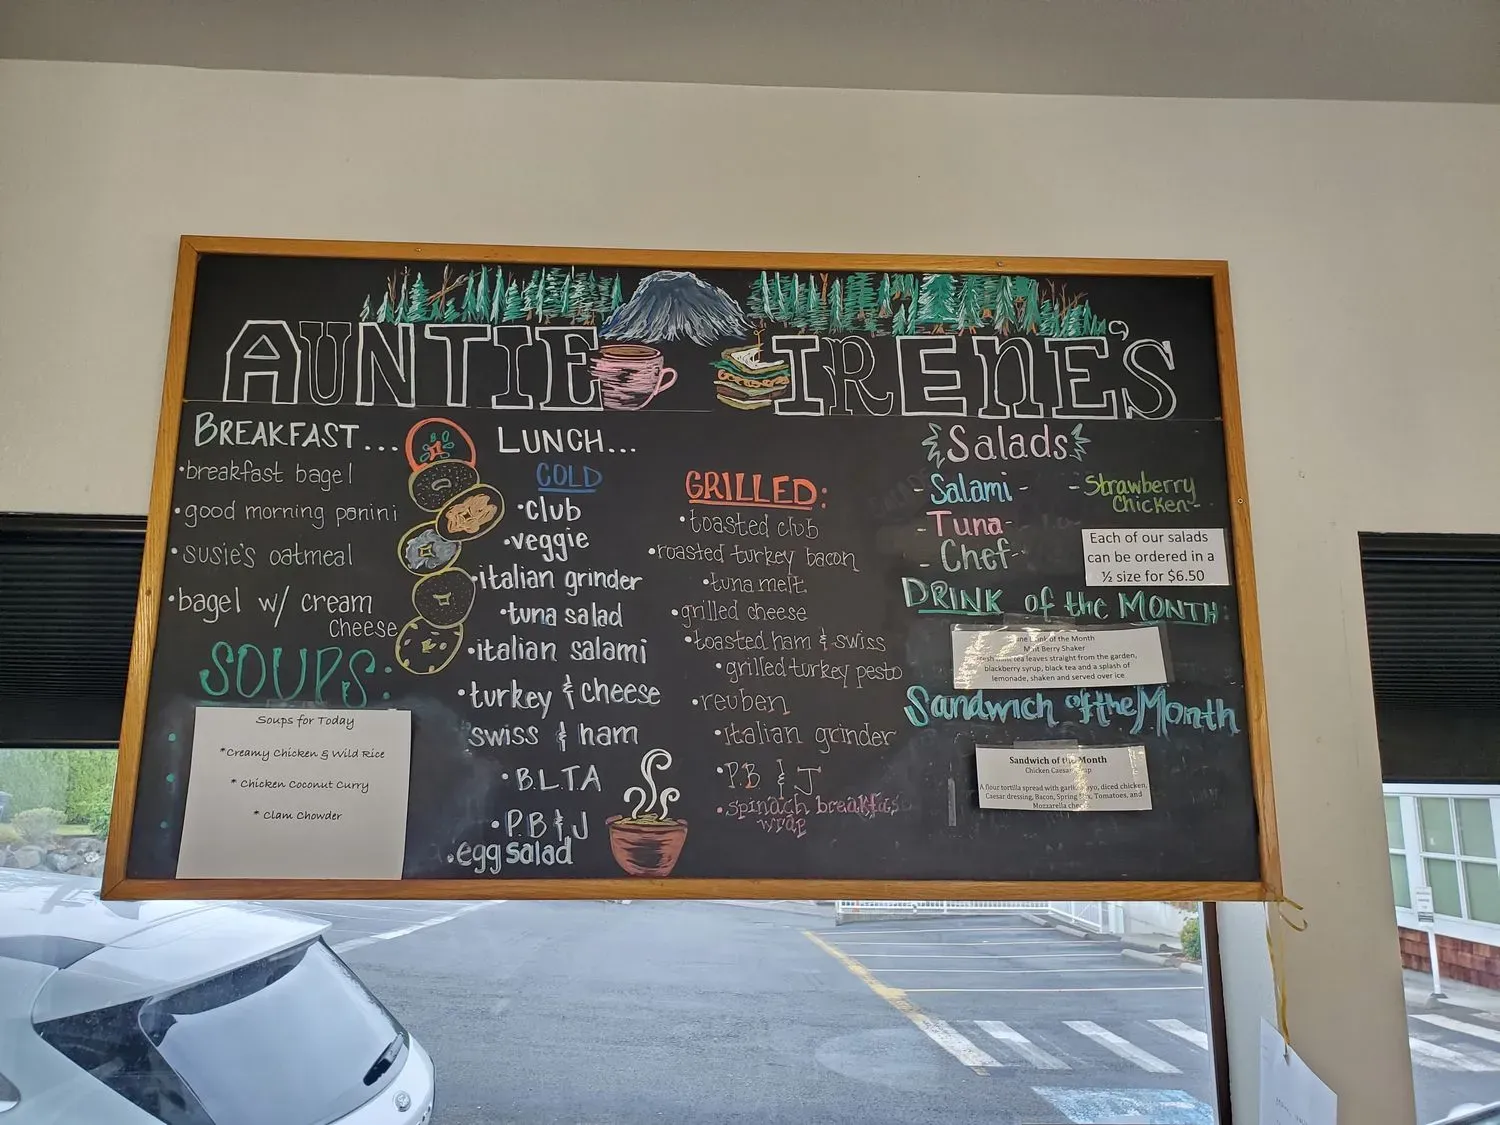 AUNTIE IRENE'S
BREAKFAST...
•breakfast bagel
•good morning panini
•susie's oatmeal
•bagel w/ cream
cheese
SOUPS:
Soups for Today
*Creamy Chicken & Wild Rice
* Chicken Coconut Curry
* Clam Chowder
LUNCH...
COLD
•club
•veggie
•italian grinder
•tuna salad
•italian salami
•turkey & cheese
swiss & ham
•B.L.T.A
•P.B & J
•egg salad
GRILLED:
•toasted club
•roasted turkey bacon
•tuna melt
•grilled cheese
•toasted ham & swiss
•grilled turkey pesto
•reuben
•italian grinder
•P.B & J
•spinach breakfas
wrap
Salads
-Salami-
-Tuna-
-Chef-
-Strawberry
Chicken-
Each of our salads
can be ordered in a
½ size for $6.50
DRINK of the MONTH:
of the Month
Berry Shaker
tea leaves straight from the garden,
blackberry syrup, black tea and a splash of
lemonade, shaken and served over ice
Sandwich of the Month
Sandwich of the Month
Chicken Caesar
A flour tortilla spread with diced chicken,
Caesar dressing, Bacon, Spring Tomatoes, and
Mozzarella